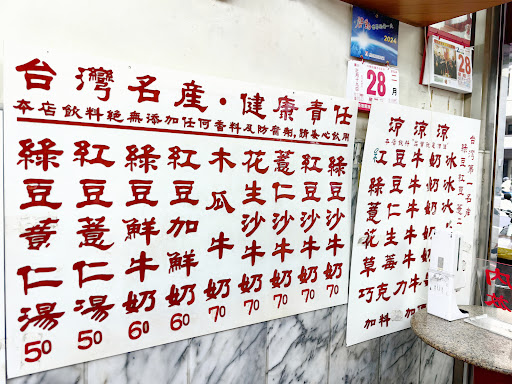 台灣名產・健康責任
本店飲料絕無添加任何香料及防腐劑,請安心飲用
綠豆薏仁湯 50
紅豆薏仁湯 50
綠豆鮮牛奶 60
紅豆加鮮奶 60
木瓜牛奶 70
花生沙牛奶 70
薏仁沙牛奶 70
紅豆沙牛奶 70
綠豆沙牛奶 70
2024
28
二月
28
涼涼涼
本店飲料
紅豆牛奶冰
綠豆牛奶
薏仁牛
花生牛
草莓牛
巧克力牛
加料 加
台灣第一名產
綠豆紅豆薏